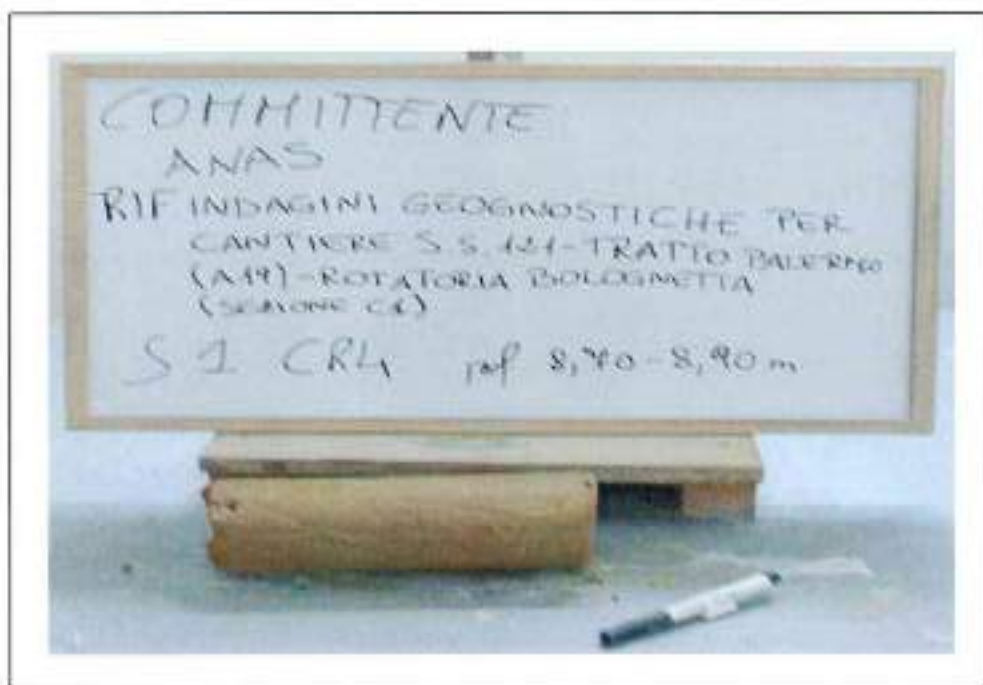 COMMITTENTE
ANAS
RIF INDAGINI GEOGNOSTICHE PER
CANTIERE S.S. 121-TRATTO PALERMO
(A19)-ROTATORIA BOLOGNETTA
(SEZIONE C1)
S1 CR4 prof 8,70-8,90 m